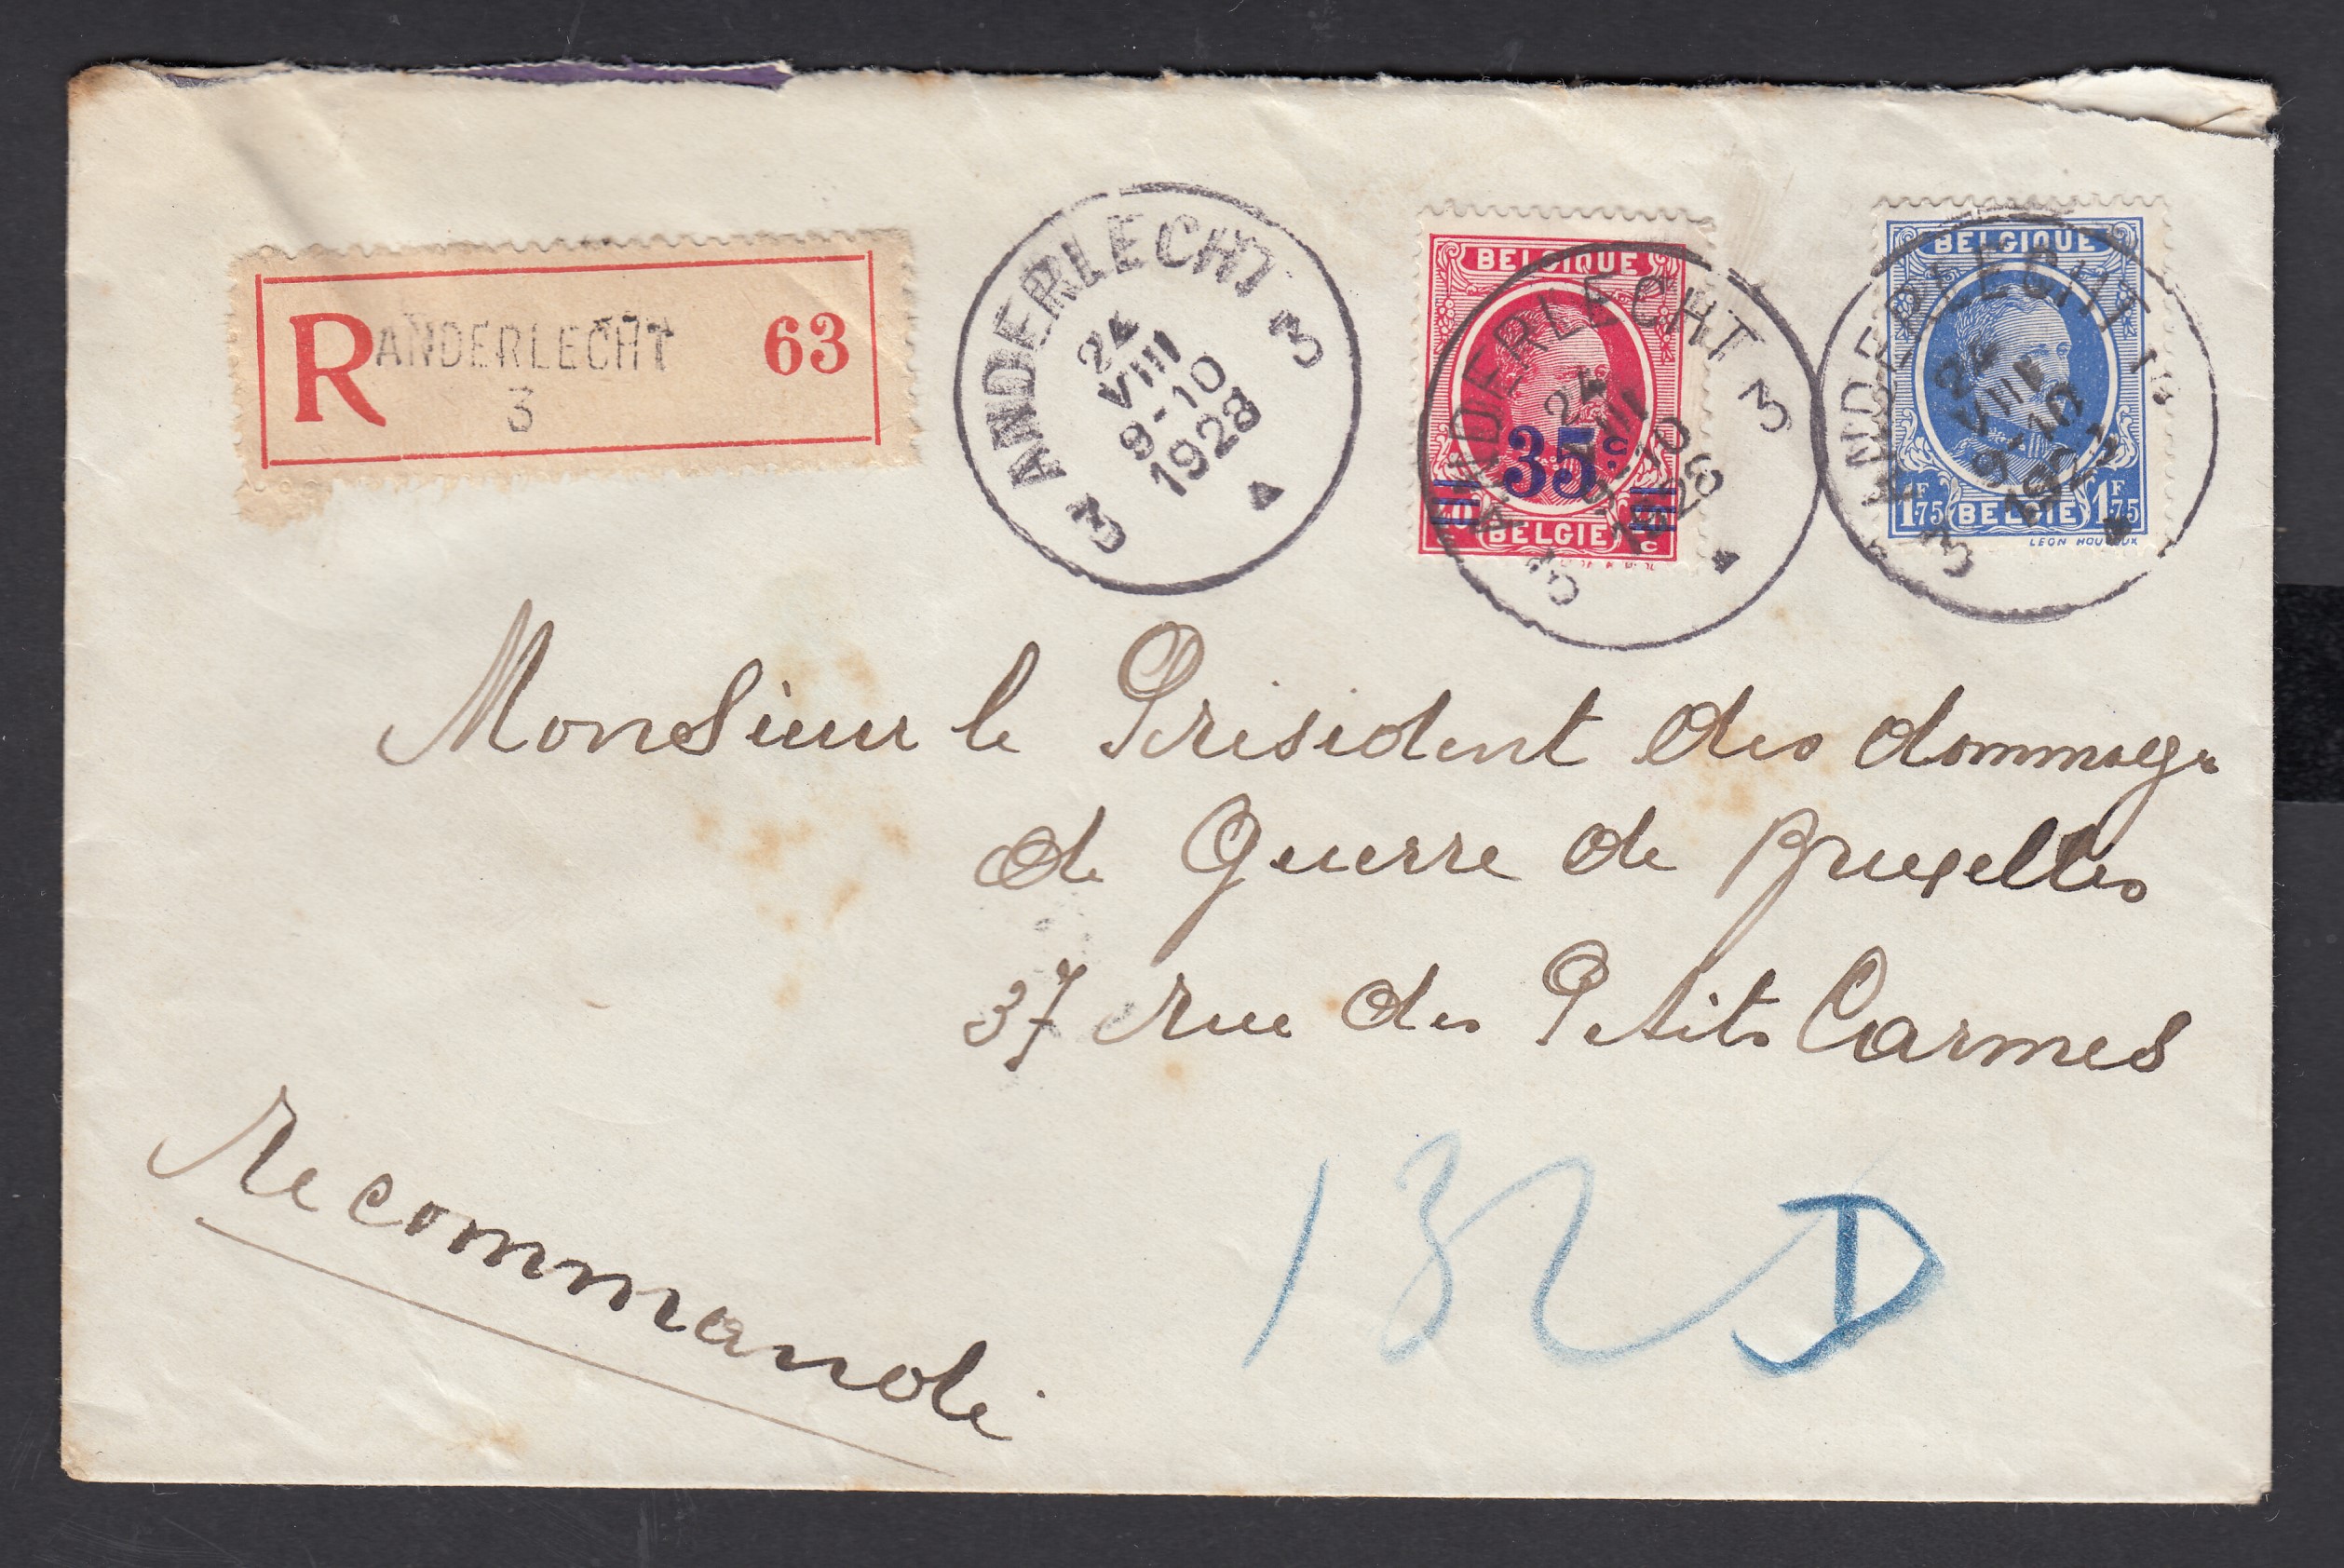 R ANDERLECHT 63
3
3 ANDERLECHT 3
24
VIII
9-10
1928
BELGIQUE
35c
BELGIE
c
ANDERLECHT 3
24
10
1928
BELGIQUE
1F75 BELGIE 1F75
LEON HOUYOUX
3 ANDERLECHT
24
VIII
9-10
Monsieur le Président des dommages
de Guerre de Bruxelles
37 rue des Petits Carmes
Recommandé
132 D